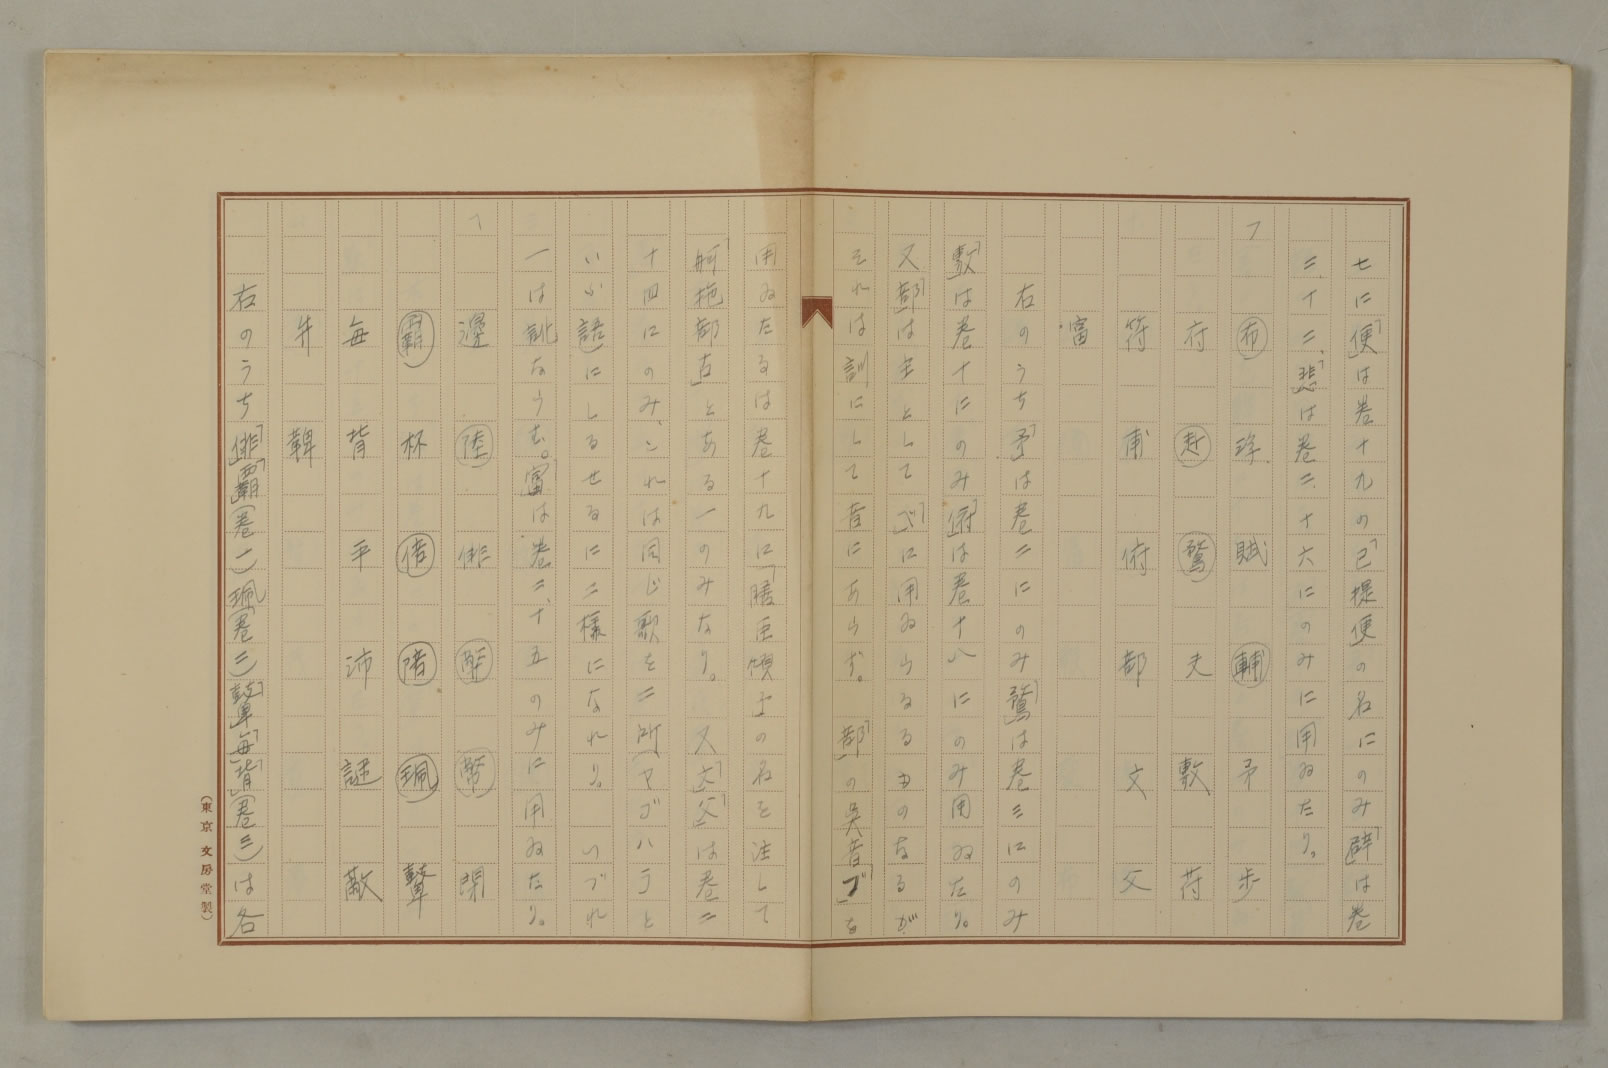 七に「便」は巻十九の「己提便の名にのみ「辟」は巻
二、十二、「悲」は巻二十六にのみに用ゐたり。
フ
布 珠 賦 輔 予 歩
府 赴 鶩 夫 敷 苻
符 甫 俯 部 文 父
富
右のうち「予」は巻二にのみ「鶩」は巻三にのみ
「敷」は巻十にのみ「俯」は巻十八にのみ用ゐたり。
又「部」は主として「ブ」に用ゐらるるものなるが
それは訓にして音にあらず。「部」の呉音「ブ」を
用ゐたるは巻十九に の名を注して
「舸拖部 」とある一のみなり。又「文」「父」は巻二
十四にのみ、これは同じ歌を二所(ヤブハラと
いふ語)にしるせるに二様になれり。いづれ
一は訛ならむ。「富」は巻二、十五のみに用ゐたり。
ヘ
邊 陸 俳 陛 幣 閉
覇 杯 倍 陪 珮 鼙
毎 背 平 沛 謎 敝
弁 鞞
右のうち「俳」「覇」(巻一)珮(巻二)「鼙」「毎」「背」(巻三)は各
(東京 文房堂製)